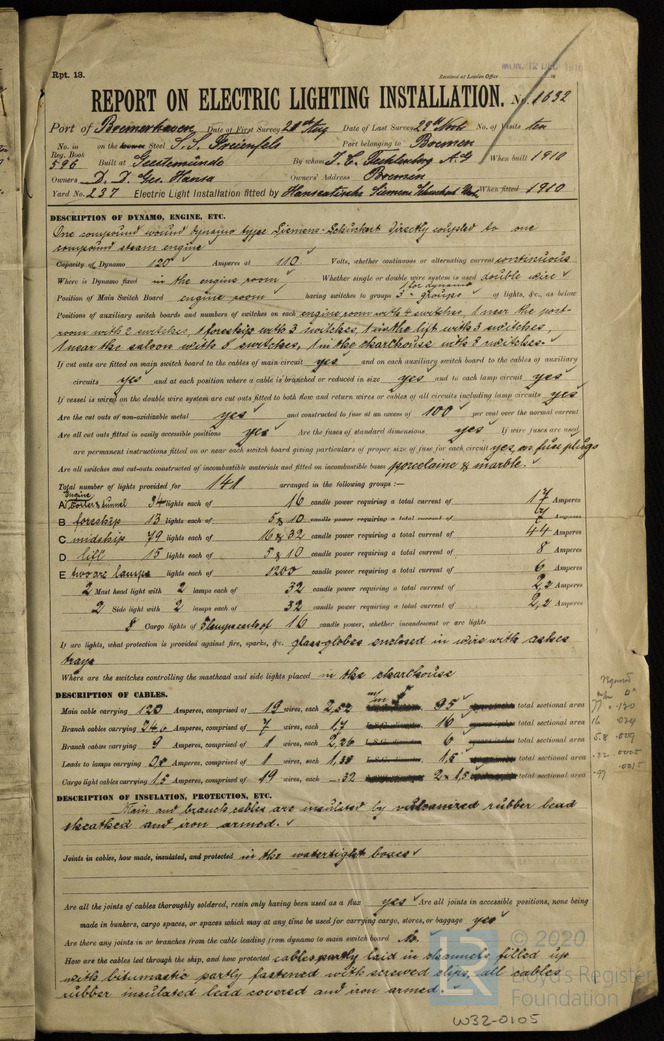 Rpt. 13.
MON. 12 DEC 1910
Received at London Office
REPORT ON ELECTRIC LIGHTING INSTALLATION. No. 1632
Port of Bremerhaven Date of First Survey 28th Aug Date of Last Survey 29th Novb No. of Visits ten
No. in Reg. Book 596 on the Steel S.S. Freienfels Port belonging to Bremen
Built at Geestemünde By whom J. C. Tecklenborg A.G When built 1910
Owners D. D. Ges. Hansa Owners' Address Bremen
Yard No. 237 Electric Light Installation fitted by Hanseatische Siemens Schuckert Wrk. When fitted 1910
DESCRIPTION OF DYNAMO, ENGINE, ETC.
One compound wound dynamo type Siemens-Schuckert directly coupled to one
compound steam engine
Capacity of Dynamo 120 Amperes at 110 Volts, whether continuous or alternating current continuous
Where is Dynamo fixed in the engine room Whether single or double wire system is used double wire
Position of Main Switch Board engine room having switches to groups 1 for dynamo 3 groups of lights, &c., as below
Positions of auxiliary switch boards and numbers of switches on each engine room with 4 switches, 1 near the port-
room with 2 switches, 1 foreship with 3 switches, 1 in the lift with 3 switches,
1 near the saloon with 8 switches, 1 in the charthouse with 3 switches.
If cut outs are fitted on main switch board to the cables of main circuit yes and on each auxiliary switch board to the cables of auxiliary
circuits yes and at each position where a cable is branched or reduced in size yes and to each lamp circuit yes
If vessel is wired on the double wire system are cut outs fitted to both flow and return wires or cables of all circuits including lamp circuits yes
Are the cut outs of non-oxidizable metal yes and constructed to fuse at an excess of 100 per cent over the normal current
Are all cut outs fitted in easily accessible positions yes Are the fuses of standard dimensions yes If wire fuses are used
are permanent instructions fitted on or near each switch board giving particulars of proper size of fuse for each circuit yes, on fuse plugs
Are all switches and cut-outs constructed of incombustible materials and fitted on incombustible bases porcelaine & marble.
Total number of lights provided for 141 arranged in the following groups :—
A Engine Boiler & tunnel 34 lights each of 16 candle power requiring a total current of 17 Amperes
B foreship 13 lights each of 5 & 10 candle power requiring a total current of Amperes
C midship 79 lights each of 16 & 32 candle power requiring a total current of 44 Amperes
D lift 15 lights each of 5 & 10 candle power requiring a total current of 8 Amperes
E two arc lamps lights each of 1200 candle power requiring a total current of 6 Amperes
2 Mast head light with 2 lamps each of 32 candle power requiring a total current of 2,2 Amperes
2 Side light with 2 lamps each of 32 candle power requiring a total current of 2,2 Amperes
8 Cargo lights of 5 lamps each of 16 candle power, whether incandescent or arc lights
If arc lights, what protection is provided against fire, sparks, &c. glass-globes enclosed in wire with ashes
trays
Where are the switches controlling the masthead and side lights placed in the charthouse
DESCRIPTION OF CABLES.
Main cable carrying 120 Amperes, comprised of 19 wires, each 2,52 95 total sectional area
Branch cables carrying 34,0 Amperes, comprised of 7 wires, each 1,7 16 total sectional area
Branch cables carrying 9 Amperes, comprised of 1 wires, each 2,26 6 total sectional area
Leads to lamps carrying 0,8 Amperes, comprised of 1 wires, each 1,38 1,5 total sectional area
Cargo light cables carrying 1,5 Amperes, comprised of 19 wires, each .32 2 x 1,5 total sectional area
DESCRIPTION OF INSULATION, PROTECTION, ETC.
Main and branch cables are insulated by vulcanized rubber lead
sheathed and iron armed.
Joints in cables, how made, insulated, and protected in the watertight boxes
Are all the joints of cables thoroughly soldered, resin only having been used as a flux yes Are all joints in accessible positions, none being
made in bunkers, cargo spaces, or spaces which may at any time be used for carrying cargo, stores, or baggage yes
Are there any joints in or branches from the cable leading from dynamo to main switch board No.
How are the cables led through the ship, and how protected cables partly laid in channels filled up
with bitumastic partly fastened with screwed clips, all cables
rubber insulated lead covered and iron armed.
© 2020
Lloyd's Register
Foundation
W32-0105